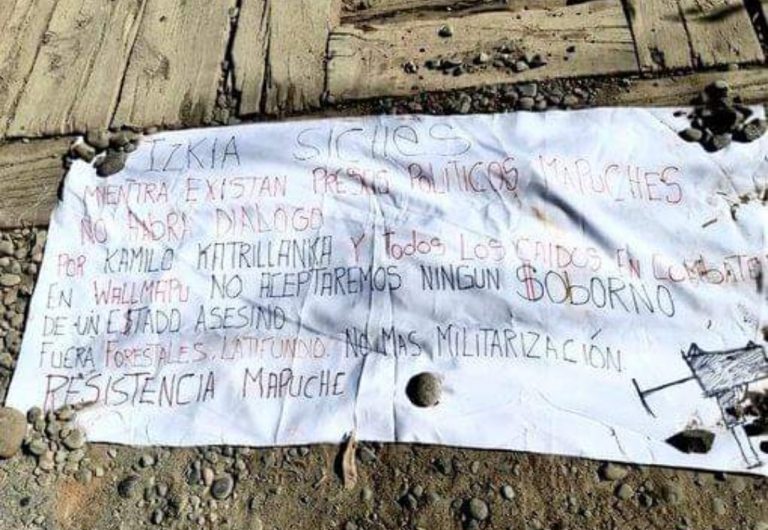 IZKIA SICHES
MIENTRA EXISTAN PRESOS POLÍTICOS MAPUCHES
NO HABRA DIALOGO
POR KAMILO KATRILLANKA Y TODOS LOS CAIDOS EN COMBATE
EN WALLMAPU NO ACEPTAREMOS NINGUN $OBORNO
DE UN ESTADO ASESINO
FUERA FORESTALES. LATIFUNDIO. NO MAS MILITARIZACIÓN.
RESISTENCIA MAPUCHE